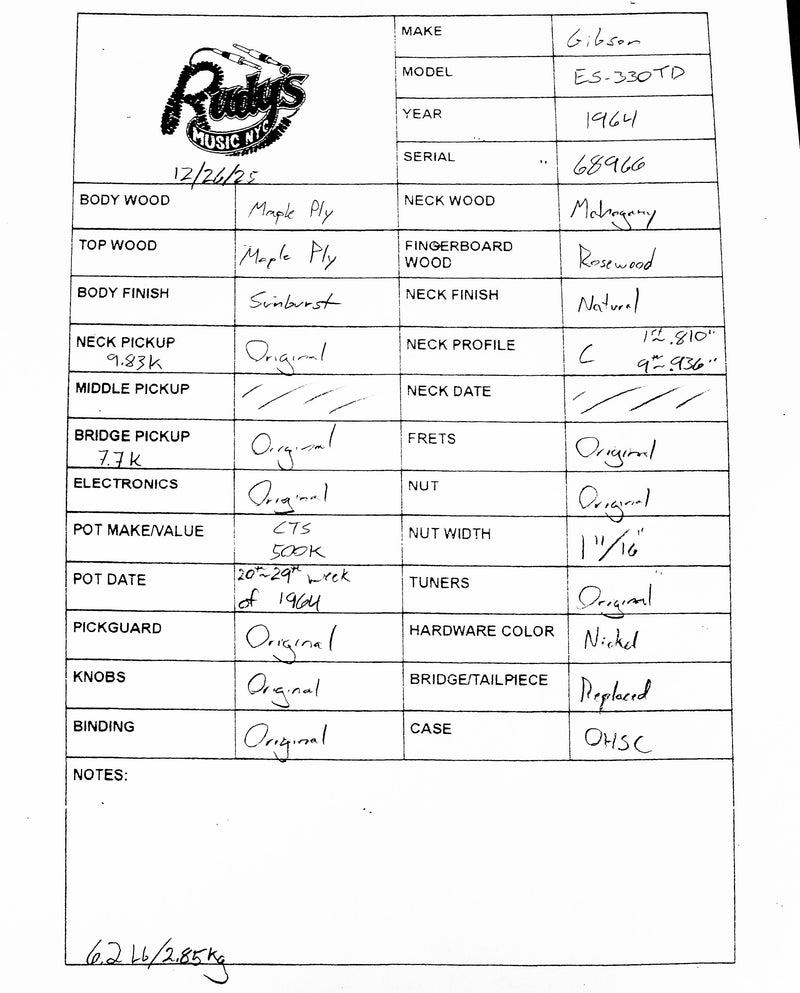 Rudy's
MUSIC NYC
12/26/25
MAKE Gibson
MODEL ES-330TD
YEAR 1964
SERIAL 68966
BODY WOOD Maple Ply NECK WOOD Mahogany
TOP WOOD Maple Ply FINGERBOARD
WOOD Rosewood
BODY FINISH Sunburst NECK FINISH Natural
NECK PICKUP
9.83K Original NECK PROFILE C 1st ~ .810"
9th ~ .936"
MIDDLE PICKUP NECK DATE
BRIDGE PICKUP
7.7K Original FRETS Original
ELECTRONICS Original NUT Original
POT MAKE/VALUE CTS
500K NUT WIDTH 1 11/16"
POT DATE 20th~29th week
of 1964 TUNERS Original
PICKGUARD Original HARDWARE COLOR Nickel
KNOBS Original BRIDGE/TAILPIECE Replaced
BINDING Original CASE OHSC
NOTES:
6.2 Lb/2.85Kg